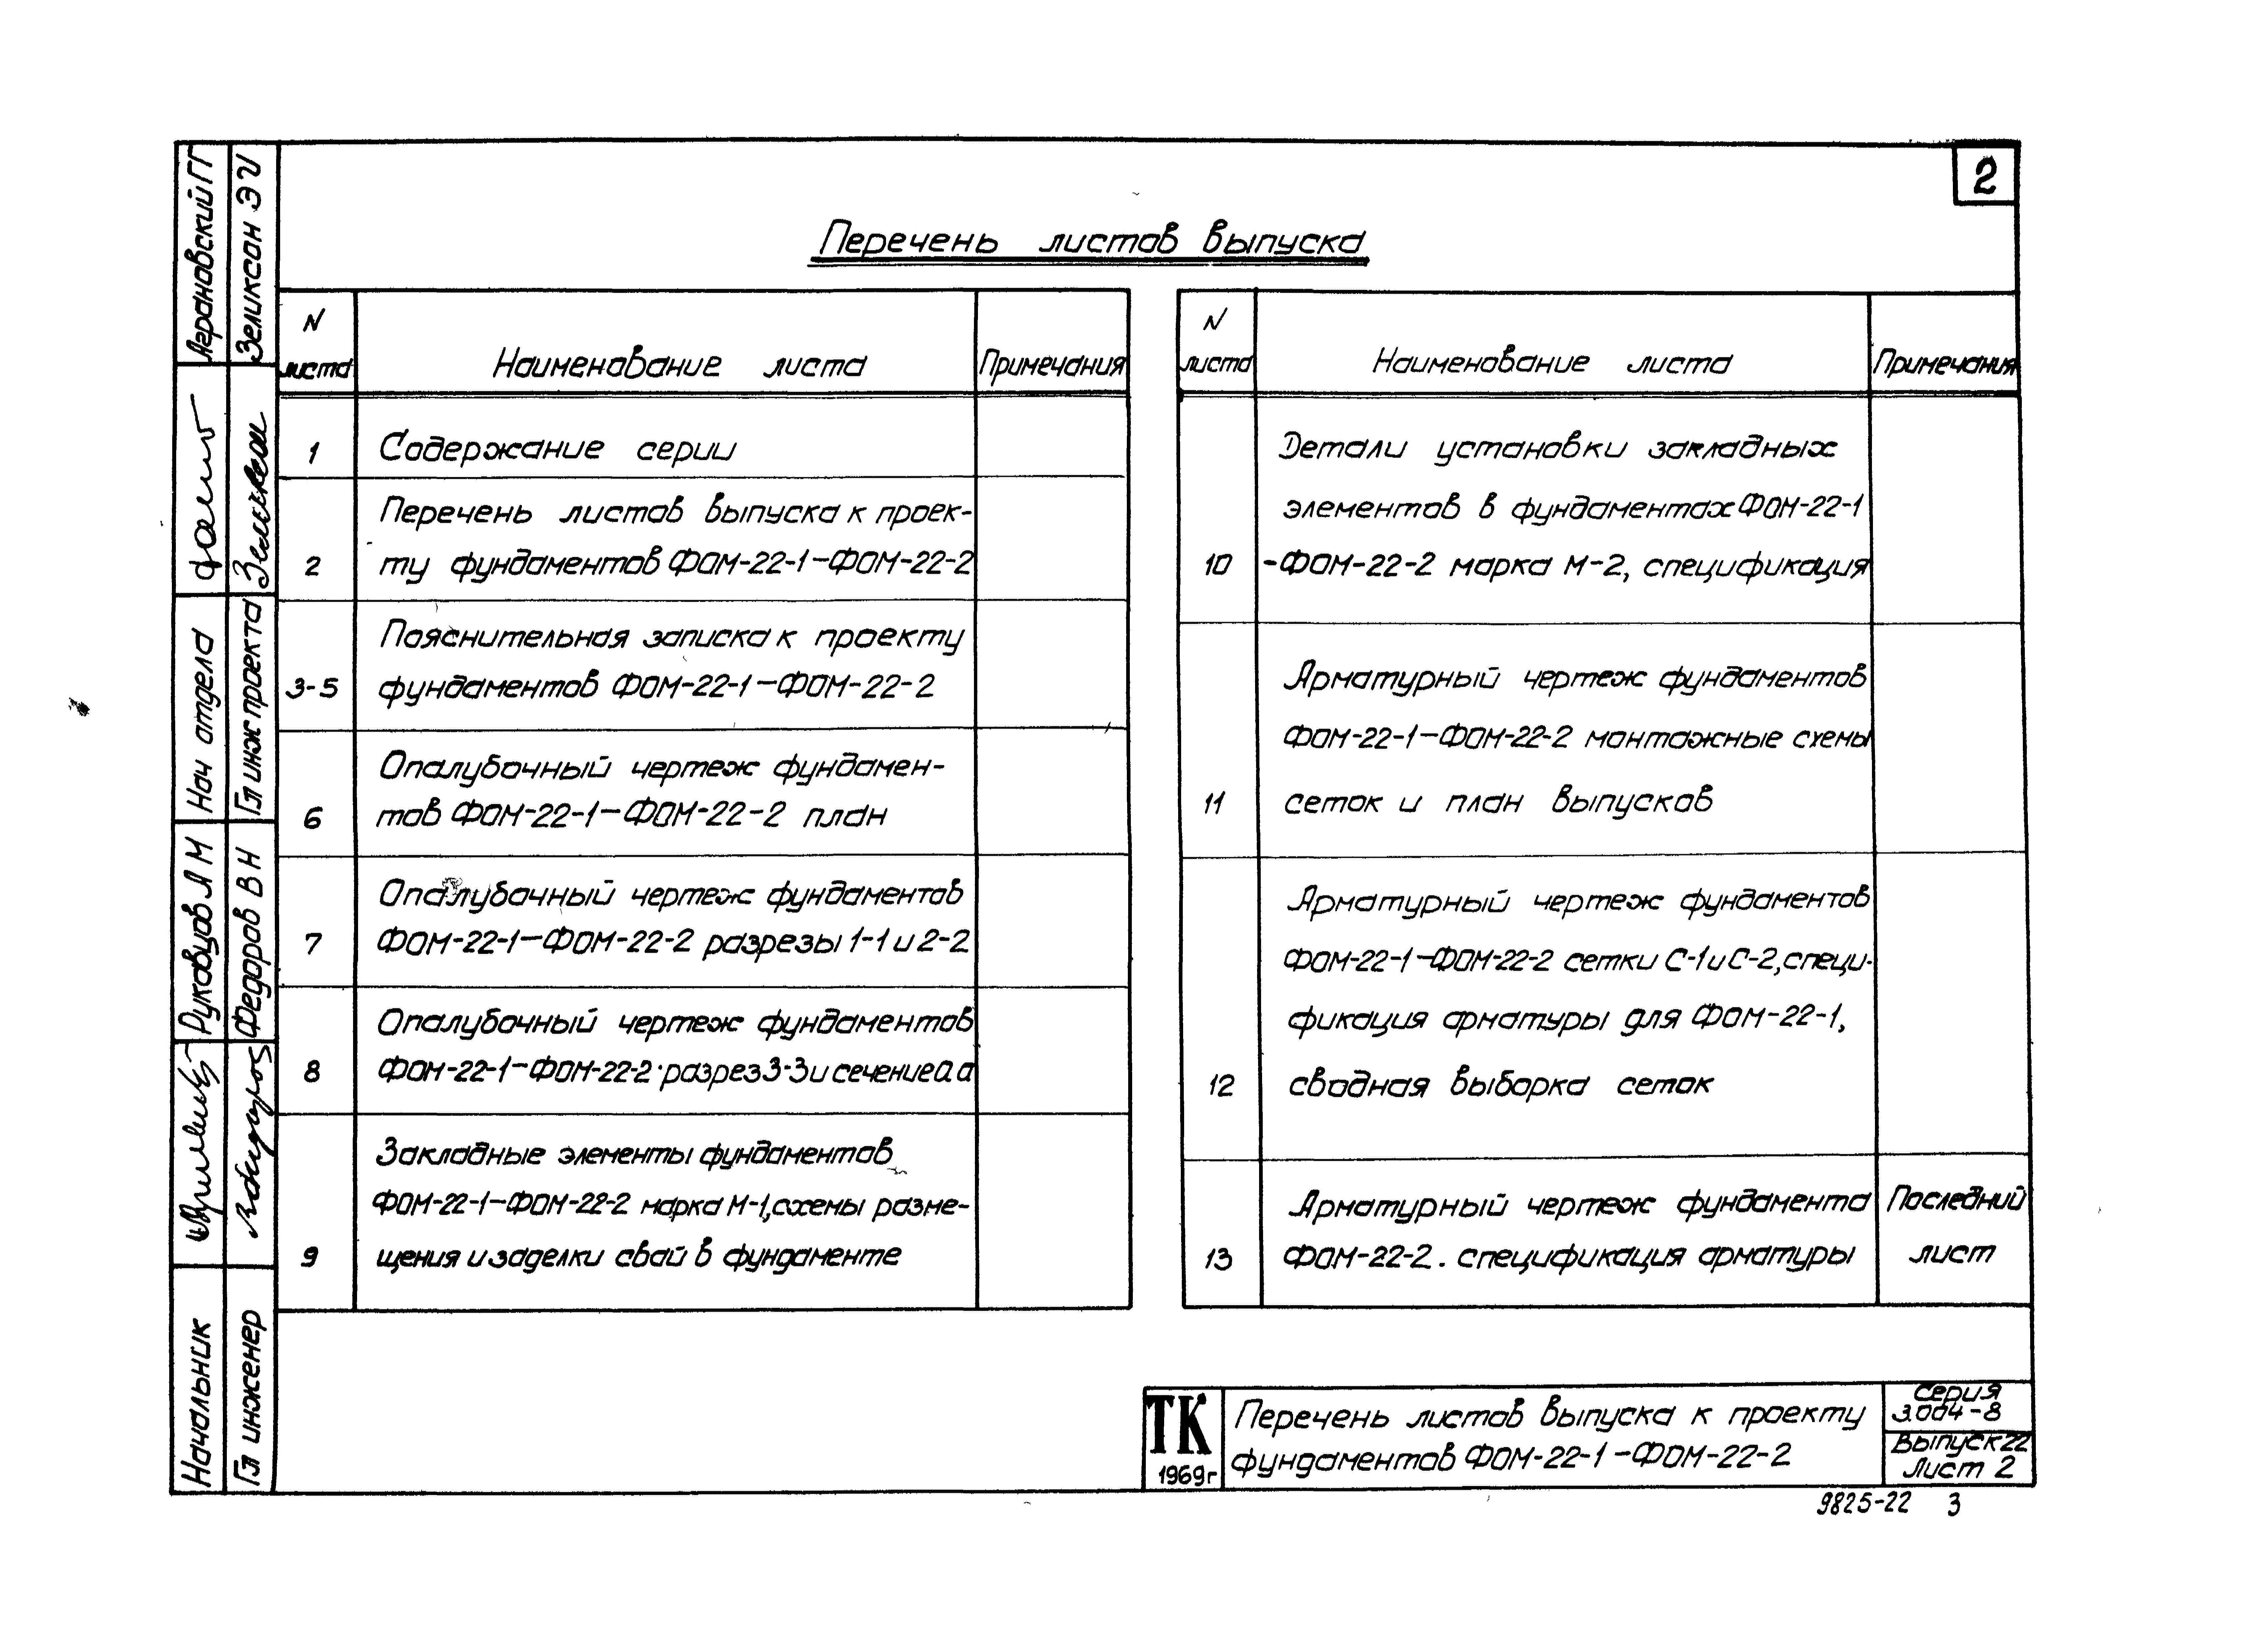 2
Перечень листов выпуска
N
листа
Наименование листа
Примечания
1
Содержание серии
Перечень листов выпуска к проек-
2
ту фундаментов ФОМ-22-1-ФОМ-22-2
Пояснительная записка к проекту
3-5
фундаментов ФОМ-22-1-ФОМ-22-2
Опалубочный чертеж фундамен-
6
тов ФОМ-22-1-ФОМ-22-2 план
Опалубочный чертеж фундаментов
7
ФОМ-22-1-ФОМ-22-2 разрезы 1-1 и 2-2
Опалубочный чертеж фундаментов
8
ФОМ-22-1-ФОМ-22-2·разрез 3-3 и сечение а а
Закладные элементы фундаментов
ФОМ-22-1-ФОМ-22-2 марка М-1, схемы разме-
9
щения и заделки свай в фундаменте
N
листа
Наименование листа
Примечания
Детали установки закладных
элементов в фундаментах ФОМ-22-1
10
-ФОМ-22-2 марка М-2, спецификация
Арматурный чертеж фундаментов
ФОМ-22-1-ФОМ-22-2 монтажные схемы
11
сеток и план выпусков
Арматурный чертеж фундаментов
ФОМ-22-1-ФОМ-22-2 сетки С-1 и С-2, специ-
фикация арматуры для ФОМ-22-1,
12
сводная выборка сеток
Арматурный чертеж фундамента
13
ФОМ-22-2. спецификация арматуры
Последний
лист
Начальник
Руковцов А М
Нач отдела
Аграновский ГГ
Гл инженер
Федоров В Н
Гл инж проекта
Зеликсон Э И
ТК
1969г
Перечень листов выпуска к проекту
фундаментов ФОМ-22-1-ФОМ-22-2
Серия
3.004-8
Выпуск 22
Лист 2
9825-22 3